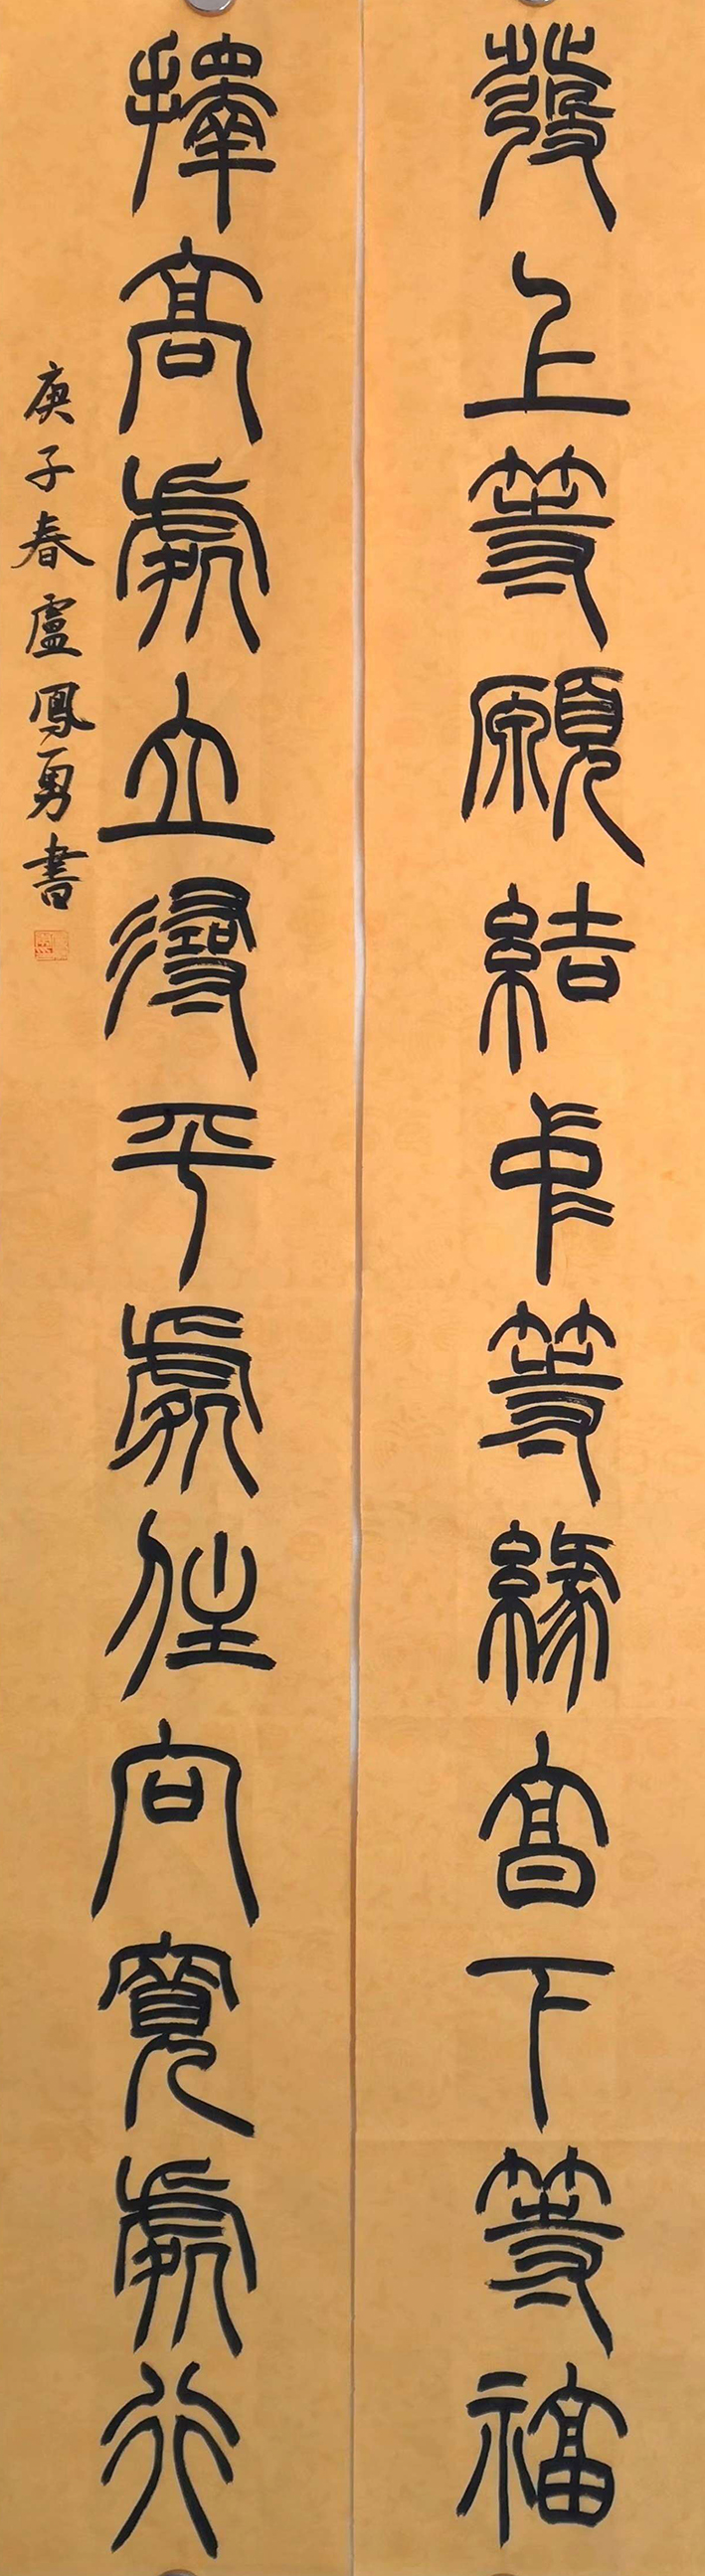 發上等願結中等緣享下等福
擇高處立得平處住向寬處行
庚子春盧鳳勇書